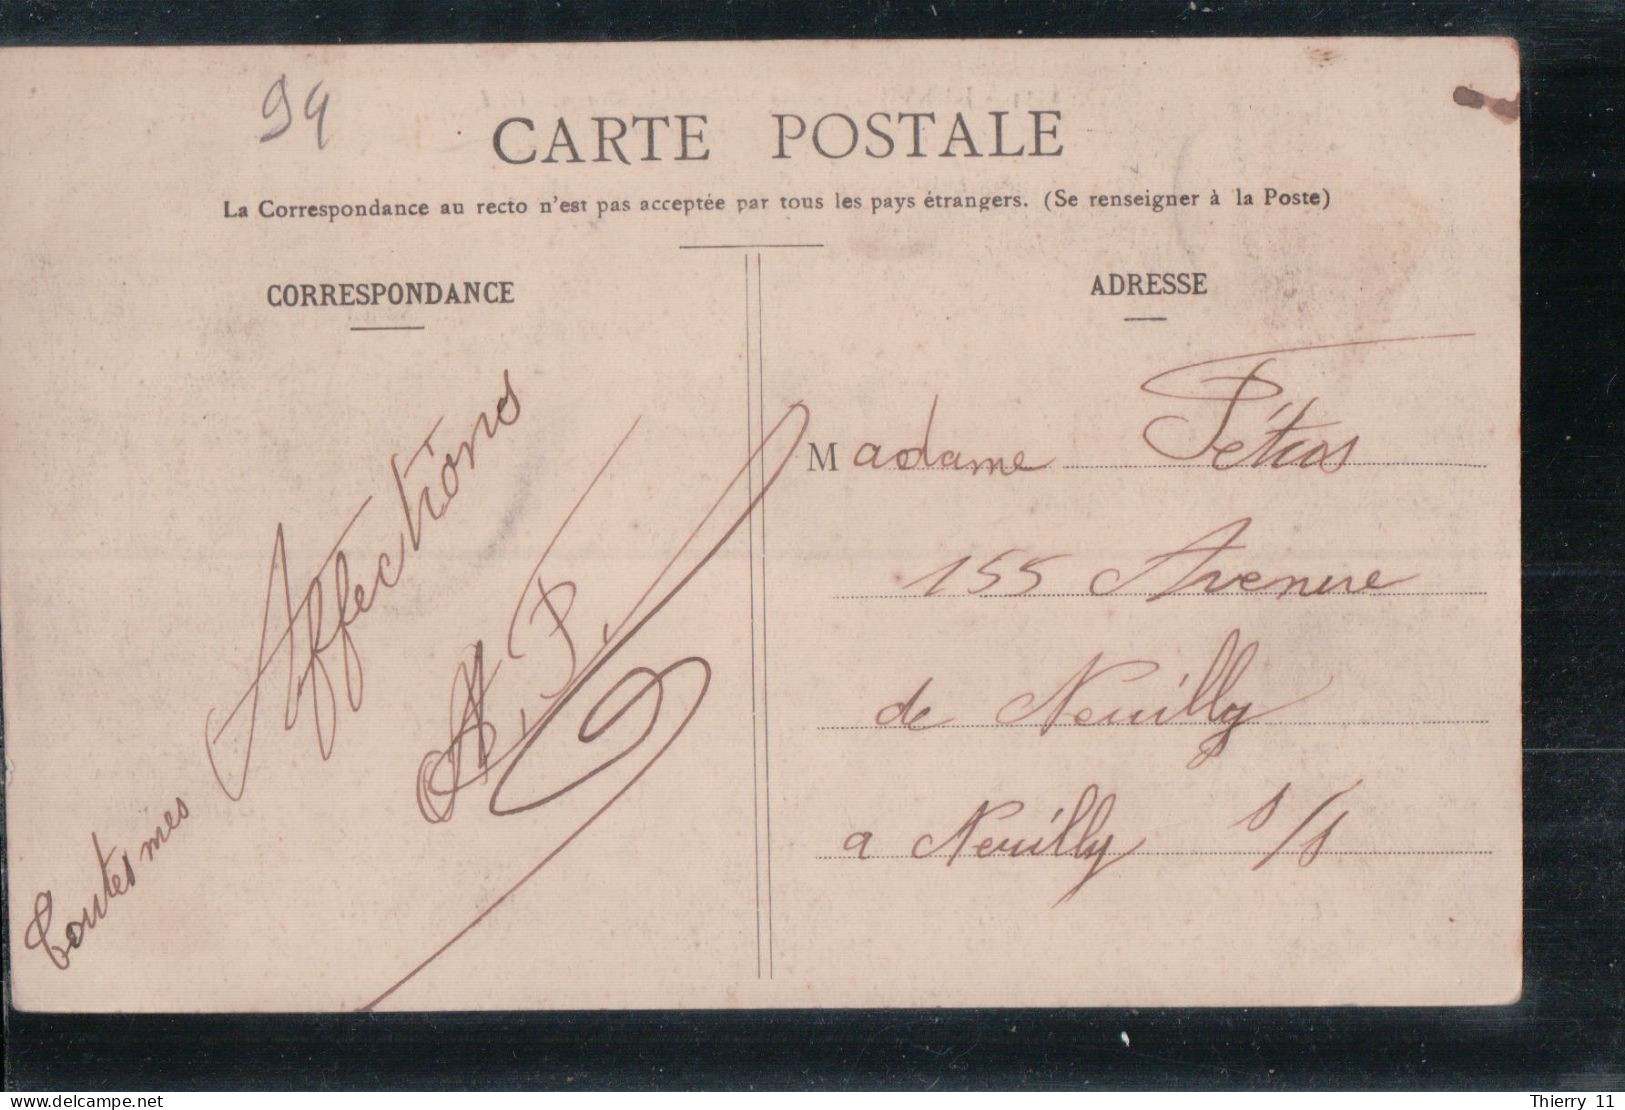 94
CARTE POSTALE
La Correspondance au recto n'est pas acceptée par tous les pays étrangers. (Se renseigner à la Poste)
CORRESPONDANCE
Toutes mes
Affections
A. P.
ADRESSE
Madame Pétros
155 Avenue
de Neuilly
a Neuilly s/s
www.delcampe.net
Thierry 11